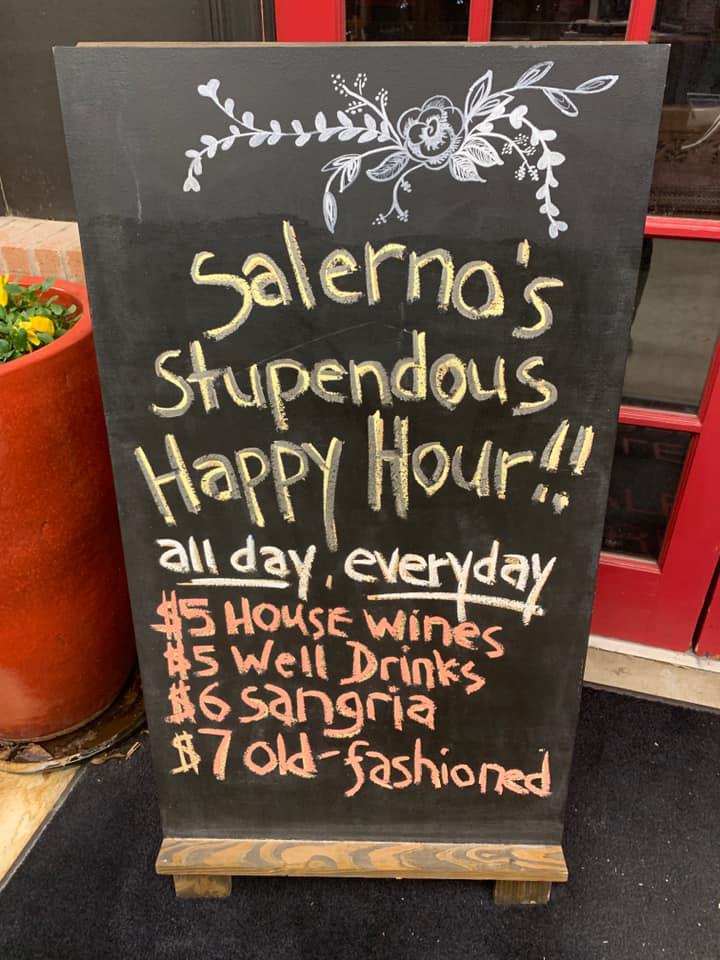 Salerno's
Stupendous
Happy Hour!!
all day, everyday
$5 House wines
$5 Well Drinks
$6 sangria
$7 old-fashioned